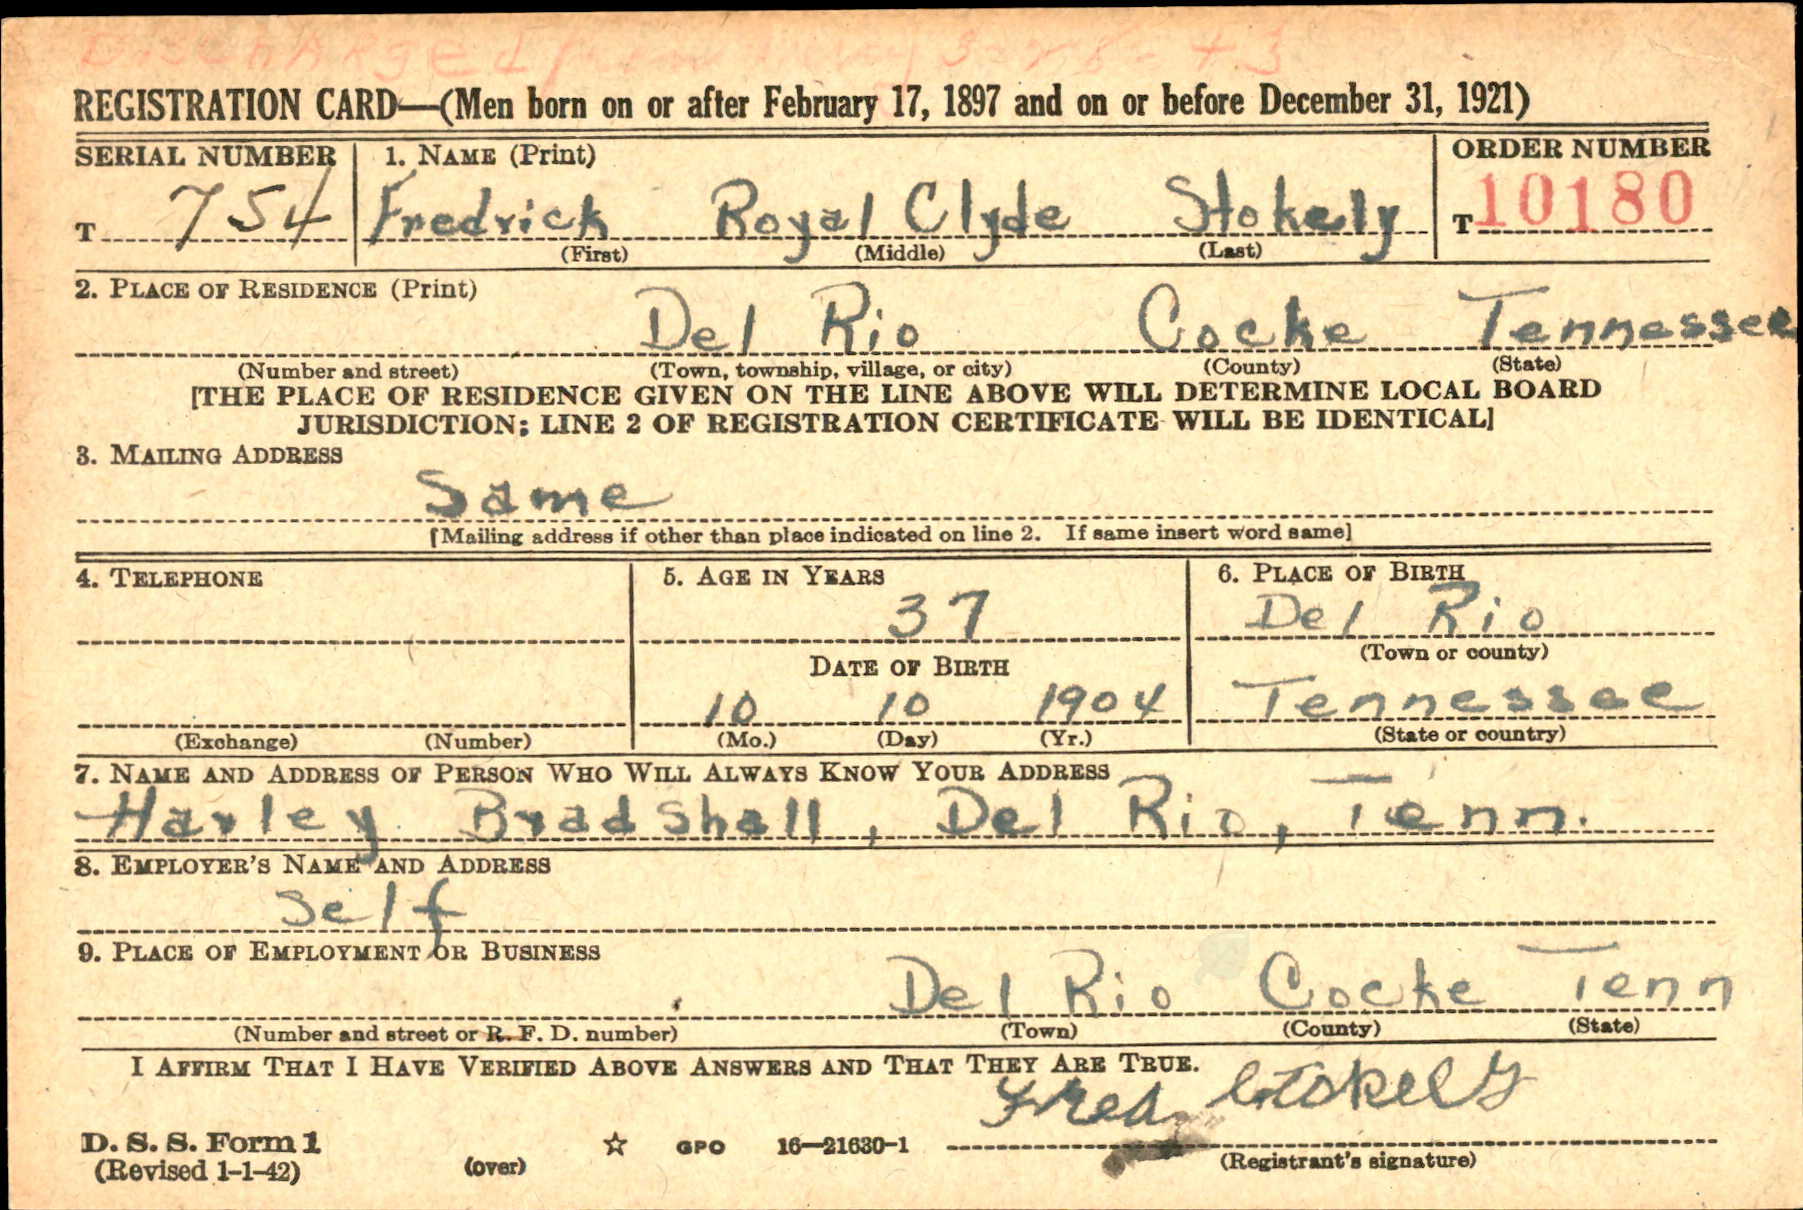 Discharged from Army 3-26-43
REGISTRATION CARD—(Men born on or after February 17, 1897 and on or before December 31, 1921)
SERIAL NUMBER 1. NAME (Print) ORDER NUMBER
T 754 Fredrick Royal Clyde Stokely T 10180
(First) (Middle) (Last)
2. PLACE OF RESIDENCE (Print)
Del Rio Cocke Tennessee
(Number and street) (Town, township, village, or city) (County) (State)
[THE PLACE OF RESIDENCE GIVEN ON THE LINE ABOVE WILL DETERMINE LOCAL BOARD
JURISDICTION; LINE 2 OF REGISTRATION CERTIFICATE WILL BE IDENTICAL]
3. MAILING ADDRESS
Same
[Mailing address if other than place indicated on line 2. If same insert word same]
4. TELEPHONE 5. AGE IN YEARS 6. PLACE OF BIRTH
37 Del Rio
(Town or county)
DATE OF BIRTH
10 10 1904 Tennessee
(Exchange) (Number) (Mo.) (Day) (Yr.) (State or country)
7. NAME AND ADDRESS OF PERSON WHO WILL ALWAYS KNOW YOUR ADDRESS
Harley Bradshall, Del Rio, Tenn.
8. EMPLOYER'S NAME AND ADDRESS
Self
9. PLACE OF EMPLOYMENT OR BUSINESS
Del Rio Cocke Tenn
(Number and street or R. F. D. number) (Town) (County) (State)
I AFFIRM THAT I HAVE VERIFIED ABOVE ANSWERS AND THAT THEY ARE TRUE.
Fred Stokely
D. S. S. Form 1
(Revised 1-1-42) (over) ☆ GPO 16—21630-1 (Registrant's signature)